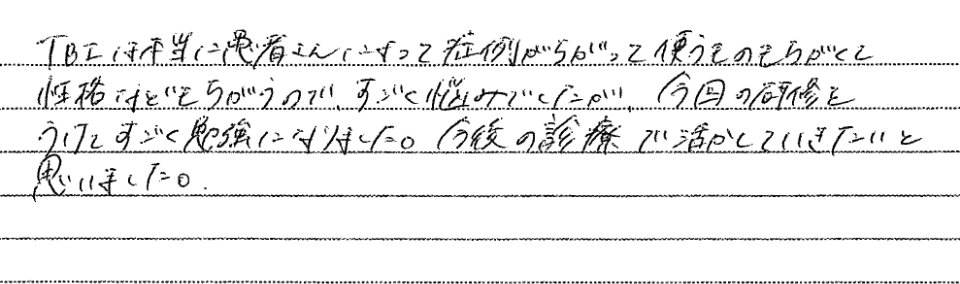 TBIは本当に患者さんによって症例がちがって使うものもちがくて
性格などもちがうので、すごく悩みでしたが、今回の研修を
うけてすごく勉強になりました。今後の診療で活かしていきたいと
思いました。